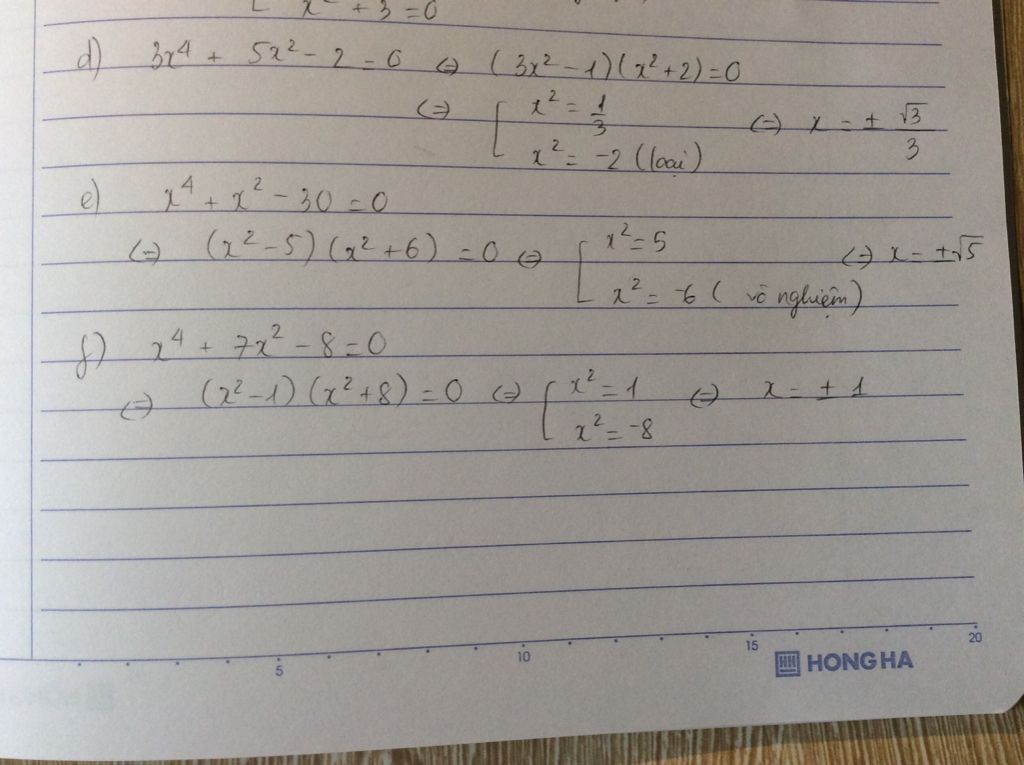 x² + 3 = 0
d) 3x⁴ + 5x² − 2 = 0 ⇔ (3x² − 1)(x² + 2) = 0
⇔ [ x² = 1/3 ⇔ x = ± √3/3
x² = −2 (loại)
e) x⁴ + x² − 30 = 0
⇔ (x² − 5)(x² + 6) = 0 ⇔ [ x² = 5 ⇔ x = ±√5
x² = −6 (vô nghiệm)
f) x⁴ + 7x² − 8 = 0
⇔ (x² − 1)(x² + 8) = 0 ⇔ [ x² = 1 ⇔ x = ± 1
x² = −8
5 10 15 20
HONG HA